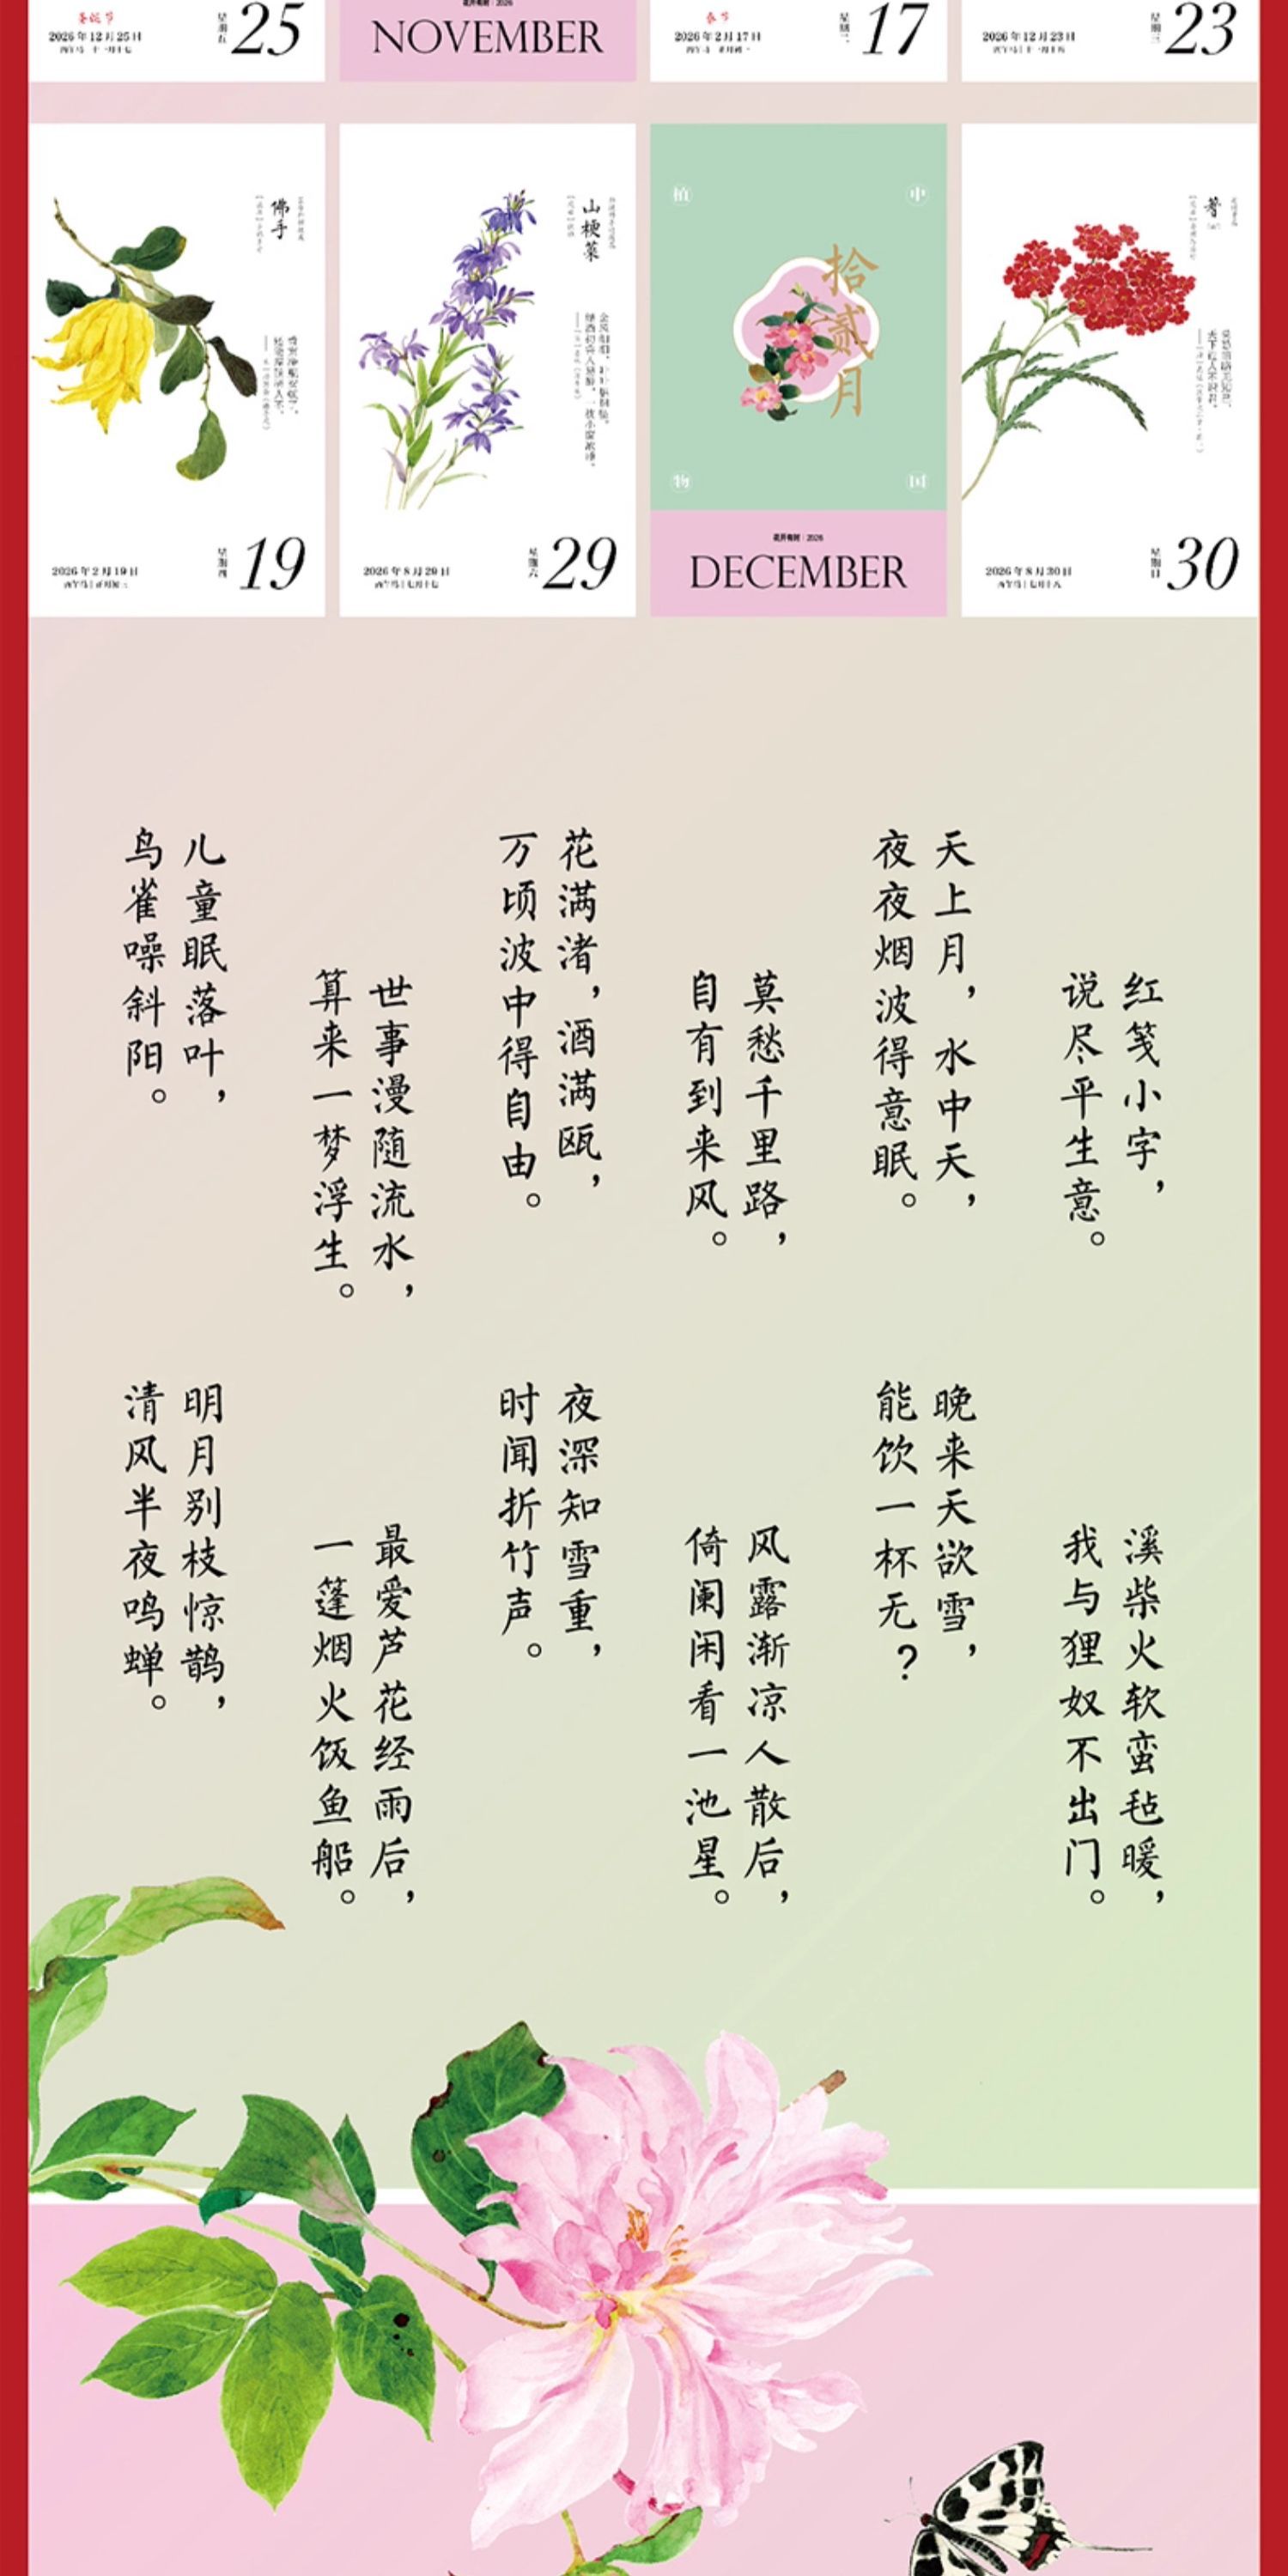 圣诞节
2026年12月25日
星期五
25
花开有时｜2026
NOVEMBER
春节
2026年2月17日
星期二
17
2026年12月23日
星期三
23
佛手
2026年2月19日
星期四
19
山梗菜
2026年8月29日
星期六
29
中
国
植
物
拾贰月
花开有时｜2026
DECEMBER
蓍
2026年8月30日
星期日
30
红笺小字，
说尽平生意。
天上月，水中天，
夜夜烟波得意眠。
莫愁千里路，
自有到来风。
花满渚，酒满瓯，
万顷波中得自由。
世事漫随流水，
算来一梦浮生。
儿童眠落叶，
鸟雀噪斜阳。
溪柴火软蛮毡暖，
我与狸奴不出门。
晚来天欲雪，
能饮一杯无？
风露渐凉人散后，
倚阑闲看一池星。
夜深知雪重，
时闻折竹声。
最爱芦花经雨后，
一篷烟火饭鱼船。
明月别枝惊鹊，
清风半夜鸣蝉。